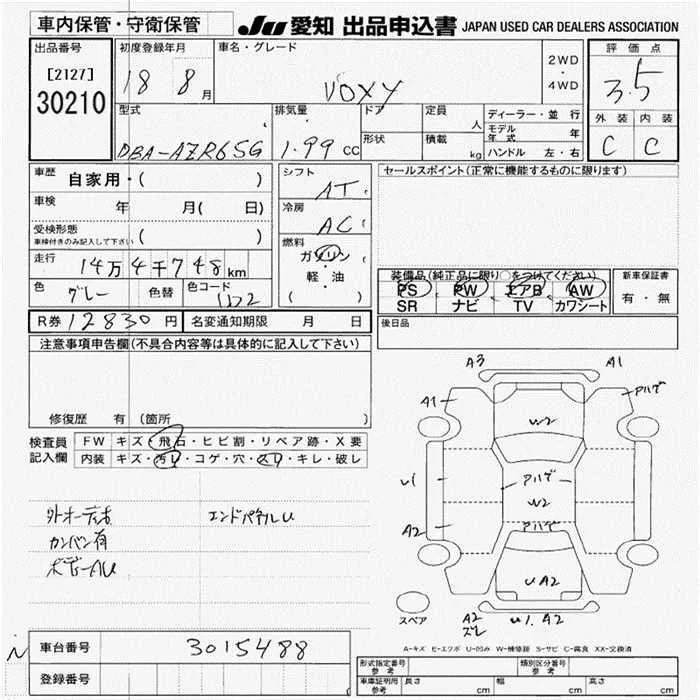 車内保管・守衛保管
JU 愛知 出品申込書 JAPAN USED CAR DEALERS ASSOCIATION
出品番号
[2127]
30210
初度登録年月
18 8 月
車名・グレード
VOXY
2WD
・
4WD
評価点
3.5
外装 内装
C C
型式
DBA-AZR65G
排気量
1.99 cc
ドア
形状
定員
人
積載
kg
ディーラー・並行
モデル年式 年
ハンドル 左・右
車歴 自家用・( )
車検 年 月( 日)
受検形態
車検付きのみ記入して下さい ( )
走行 14万4千748km
色 グレー 色替 色コード
シフト AT
冷房 AC
燃料
ガソリン
・
軽・油
( )
セールスポイント(正常に機能するものに限ります)
装備品(純正品に限り○をつけてください)
PS PW エアB AW
SR ナビ TV カワシート
新車保証書
有・無
後日品
R券 12830円 名変通知期限 月 日
注意事項申告欄(不具合内容等は具体的に記入して下さい)
修復歴 有 (箇所 )
検査員記入欄
FW キズ・飛石・ヒビ割・リペア跡・X要
内装 キズ・汚レ・コゲ・穴・スレ・キレ・破レ
外オーディオ エンドパネルU
カンバン有
ボデーAU
A3 A1
A1 アハゲ
W2
U1 アハゲ
W2
A2 アハゲ
UA2
A2
ズレ
U1.A2
スペア
A-キズ E-エクボ U-凹み W-補修跡 S-サビ C-腐食 XX-交換済
N
車台番号 3015488
登録番号
形式指定番号 参考
類別区分番号 参考
車庫証明用 参考 長さ cm 幅 cm 高さ cm